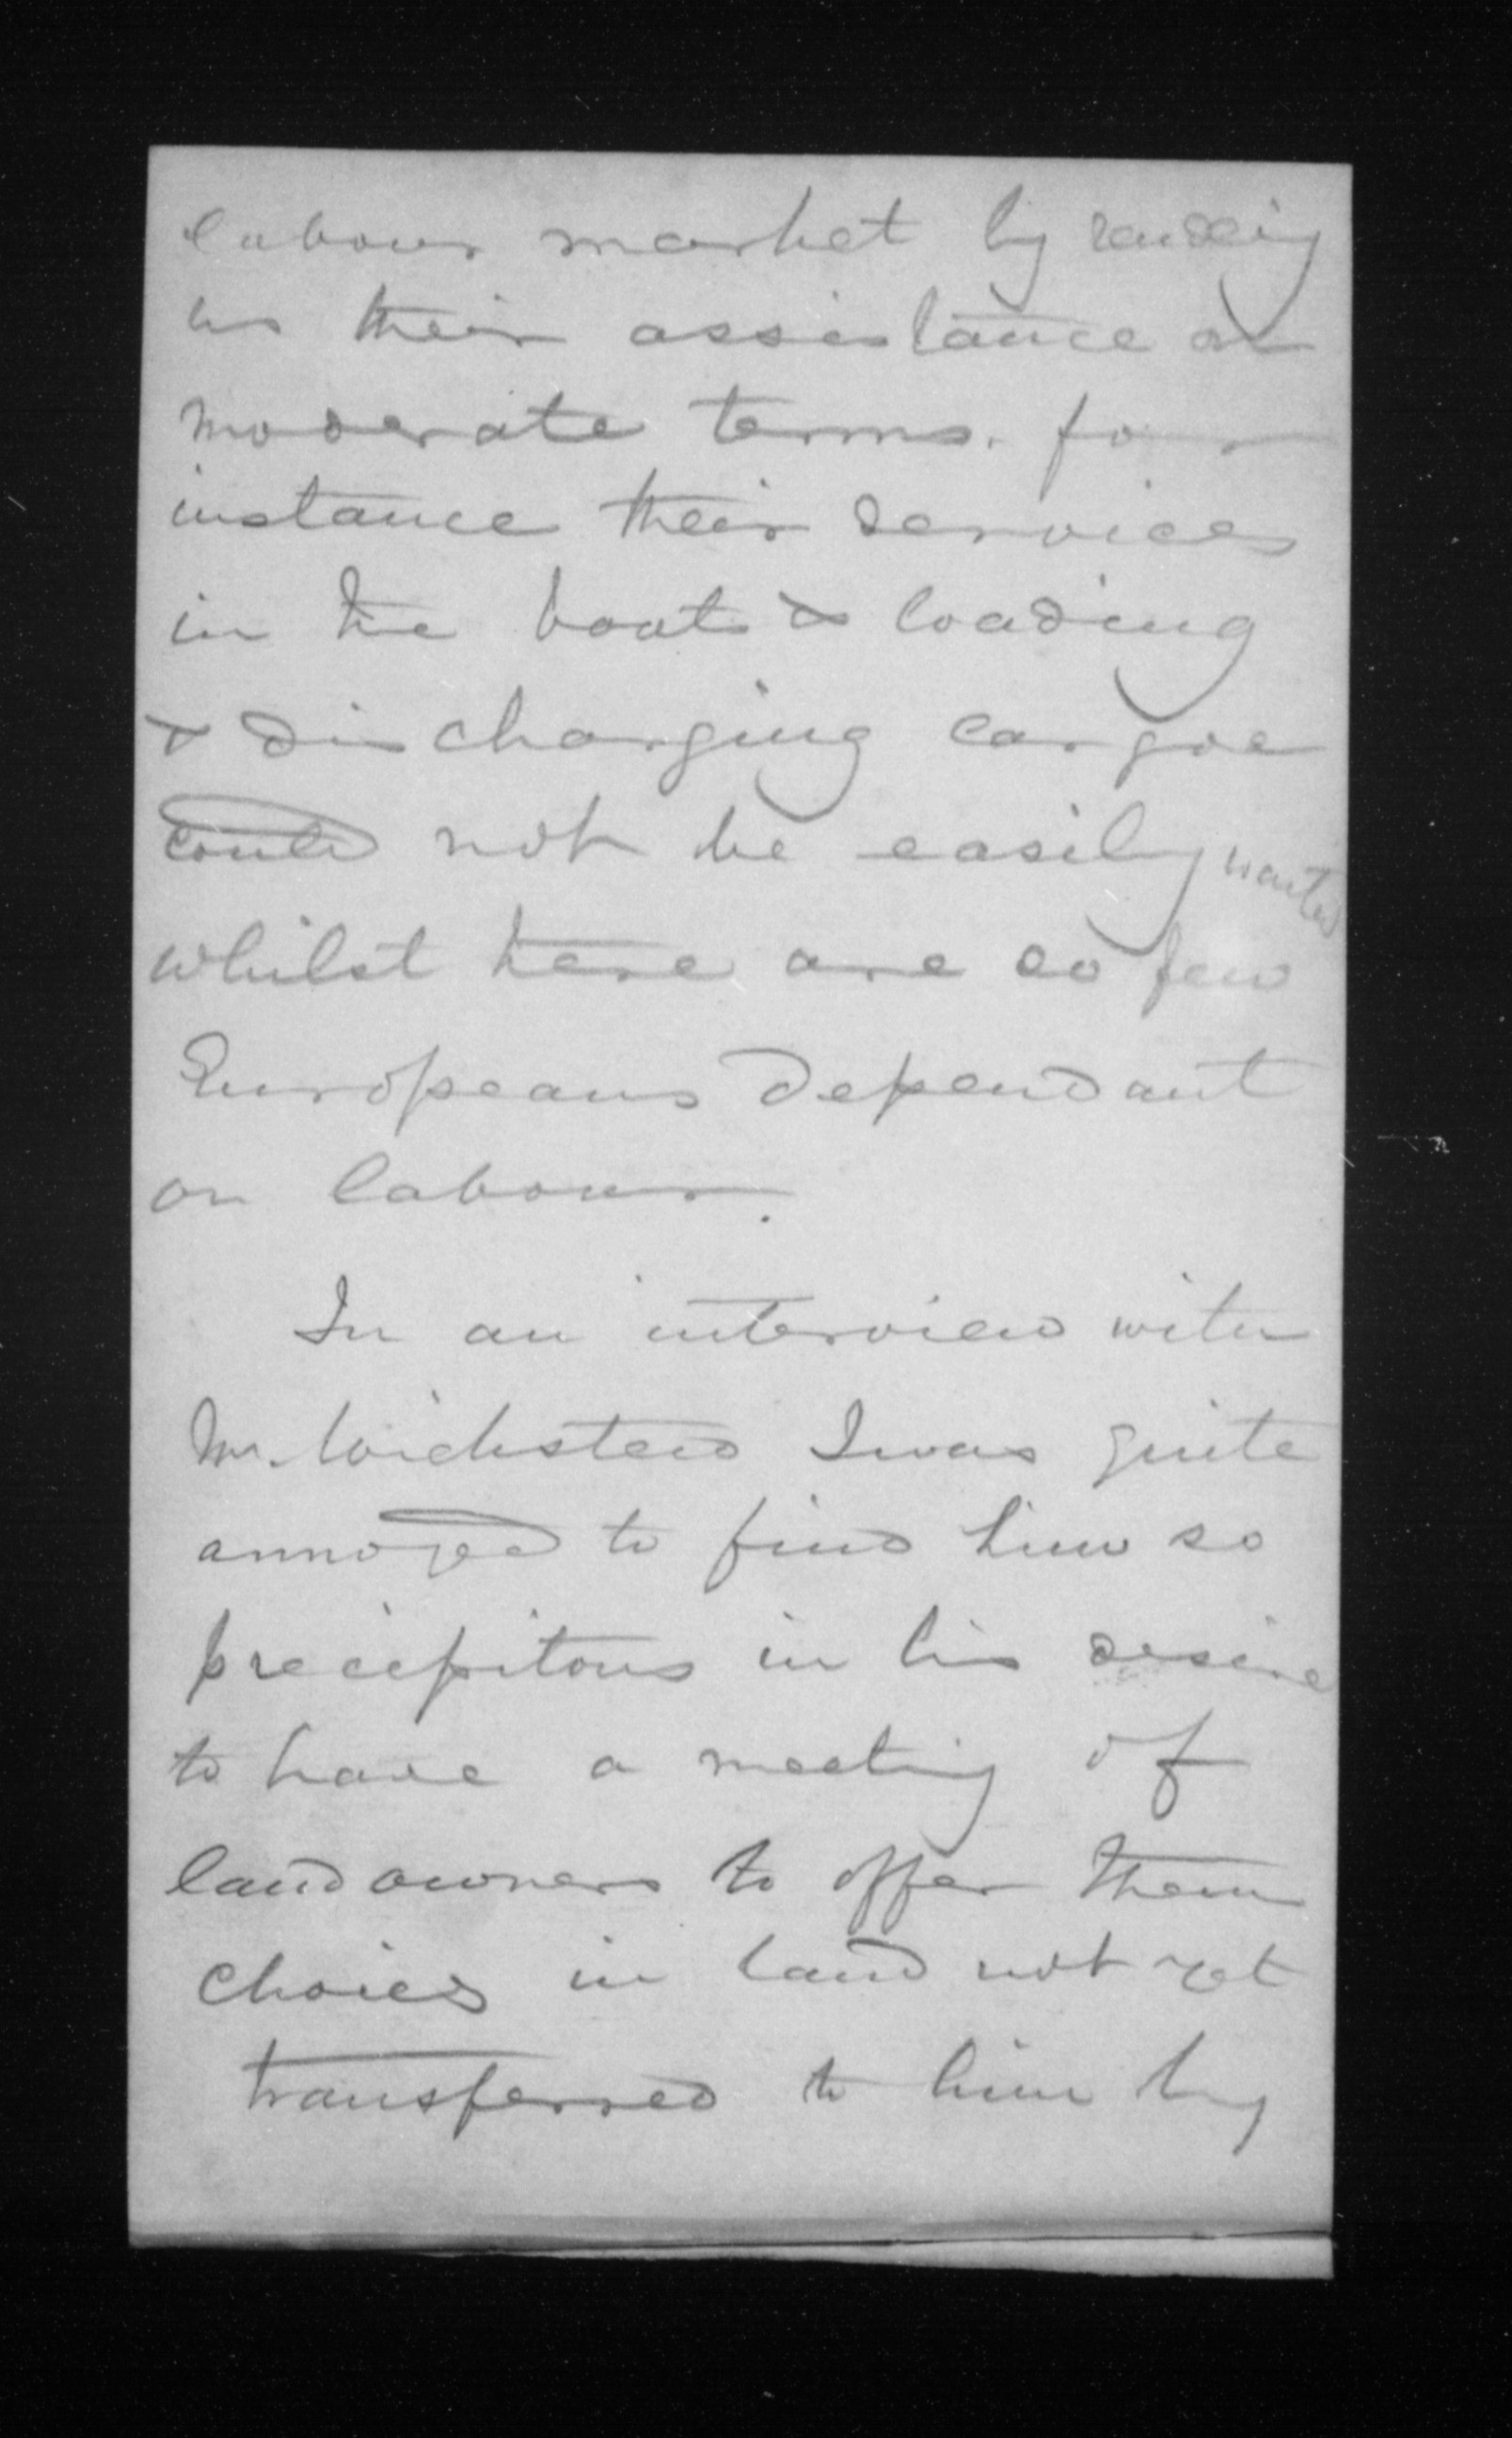 labour market by rendering
us their assistance on
moderate terms. for
instance their services
in the boats & loading
& discharging cargoe
could not be easily wanted
whilst there are so few
Europeans dependant
on labour.
In an interview with
Mr. Wicksteed I was quite
annoyed to find him so
precipitous in his desire
to have a meeting of
landowners to offer them
choices in land not yet
transferred to him by